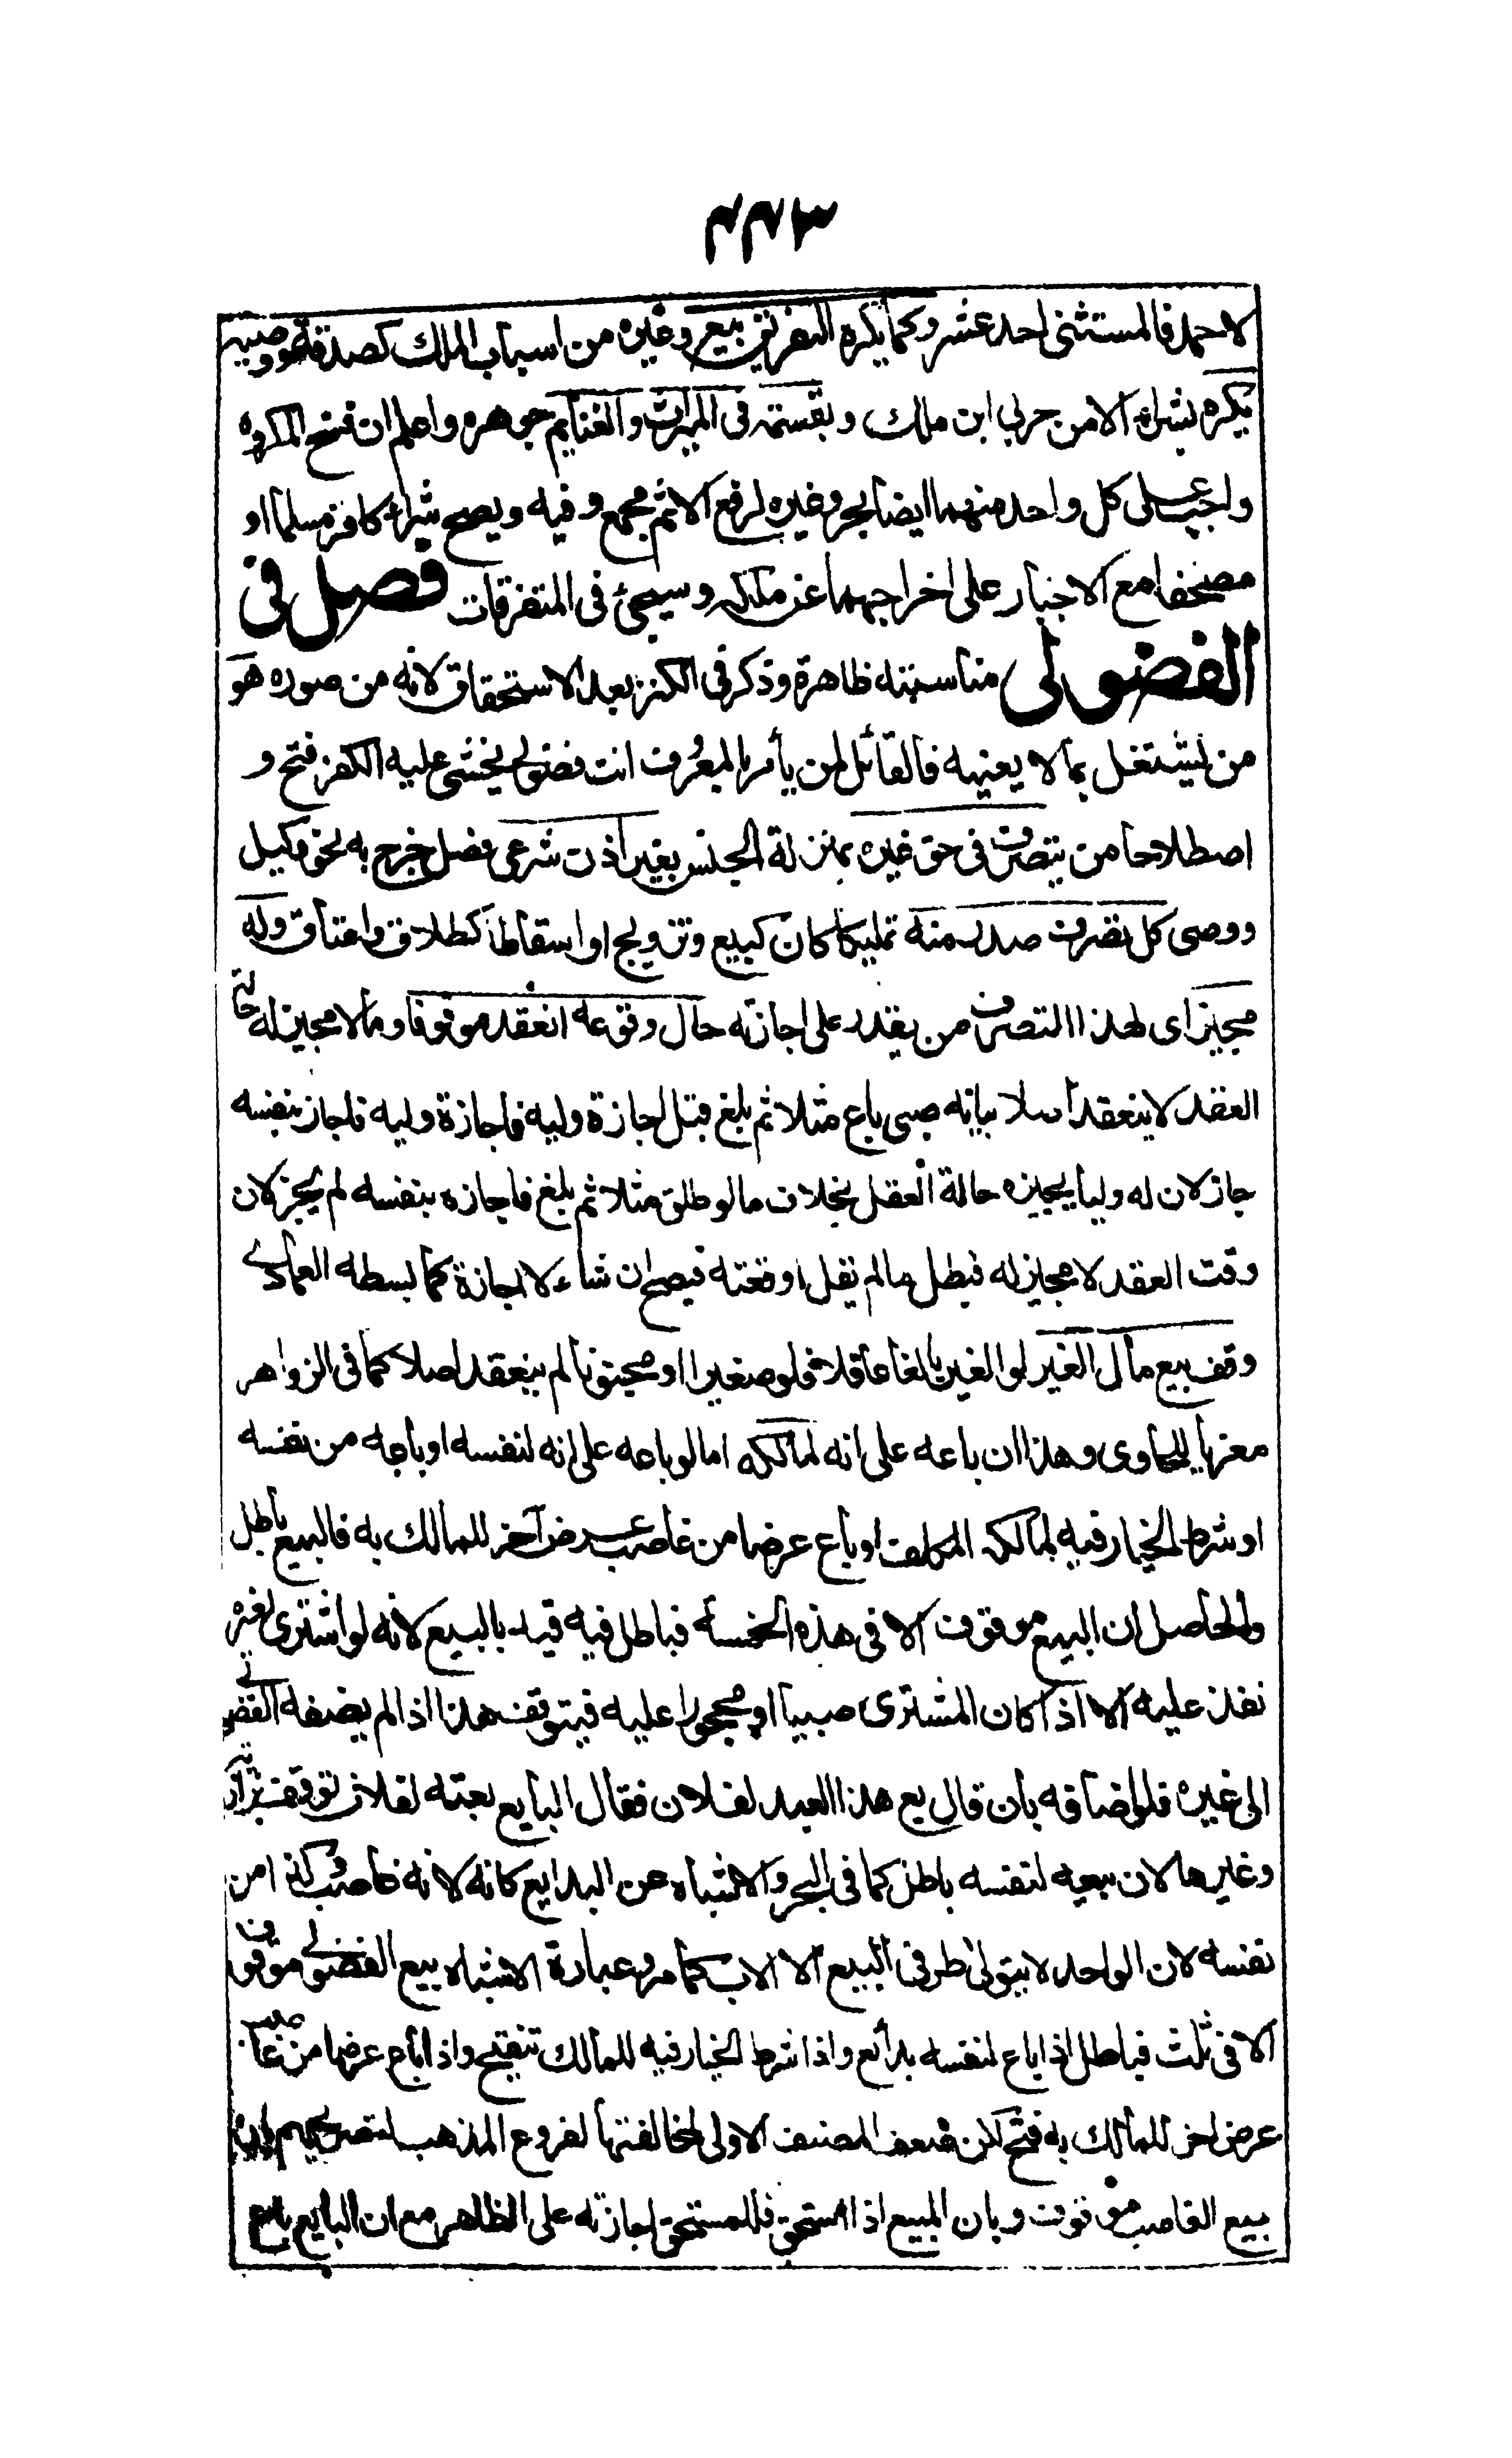 ٤٤٣
لاحمد فالمستثنى احد عشر وكما يكره التفريق ببيع وغيره من اسباب الملك كصدقة ووصية
يكره بشراء الا من حربي ابن ملك وبقسمة فى الميراث والغنايم جوهره واعلم ان فسخ المكروه
واجب على كل واحد منهما ايضا بحر وغيره لرفع الاثم مجمع وفيه ويصح شراء كافر مسلما او
مصحفا مع الاجبار على اخراجهما عن ملكه وسيجئ فى المتفرقات فصل فى
الفضولى مناسبته ظاهرة وذكره فى الكنز بعد الاستحقاق لانه من صوره هو
من يشتغل بما لا يعنيه فالقائل لمن يأمر بالمعروف انت فضولى يخشى عليه الكفر فتح و
اصطلاحا من يتصرف فى حق غيره بمنزلة الجنس بغير اذن شرعى فصل خرج به نحو وكيل
ووصى كل تصرف صدر منه تمليكا كان كبيع وتزويج او اسقاطا كطلاق واعتاق وله
مجيز اى لهذا التصرف من يقدر على اجازته حال وقوعه انعقد موقوفا وما لا مجيز له حالة
العقد لا ينعقد اصلا بيانه صبى باع مثلا ثم بلغ قبل اجازة وليه فاجازة وليه فاجاز بنفسه
جاز لان له وليا يجيزه حالة العقل بخلاف ما لو طلق مثلا ثم بلغ فاجازه بنفسه لم يجز لان
وقت العقد لا مجيز له فبطل ما لم يقل اوقعته فيصح ان شاء لا اجازة كما بسطه العمادى
وقف بيع مال الغير لو الغير بالغا عاقلا فلو صغيرا او مجنونا لم ينعقد اصلا كما فى الزواهر
معزيا للحاوى وهذا ان باعه على انه لمالكه اما لو باعه على انه لنفسه او باعه من نفسه
او شرط الخيار فيه لمالكه المكلف او باع عرضا من غاصب عرض آخر للمالك به فالبيع باطل
والحاصل ان البيع موقوف الا فى هذه الخمسة فباطل فيه قيد بالبيع لانه لو اشترى لغيره
نفذ عليه الا اذا كان المشترى صبيا او محجورا عليه فيتوقف هذا اذا لم يضفه الفضولى
الى غيره فلو اضافه بان قال بع هذا العبد لفلان فقال البايع بعته لفلان توقف بزازية
وغيرها لان بيعه لنفسه باطل كما فى البحر والاشباه عن البدايع كانه لانه غاصب وكذا من
نفسه لان الواحد لا يتولى طرفى البيع الا الاب كما مر وعبارة الاشباه بيع الفضولى موقوف
الا فى ثلث فباطل اذا باع لنفسه بدائع واذا شرط الخيار فيه للمالك تنقيح واذا باع عرضا من غاصب
عرض اخر للمالك به فتح لكن ضعف المصنف الاولى لمخالفتها لفروع المذهب لتصريحهم بان
بيع الغاصب موقوف وبان المبيع اذا استحق فللمستحق اجازته على الظاهر مع ان البايع باع